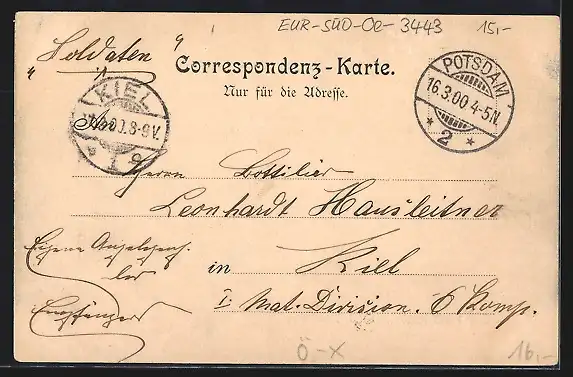 EUR-SÜD-Oe-3443 15,-
"Soldaten"
Correspondenz-Karte.
Nur für die Adresse.
POTSDAM
16.3.00 4-5N.
* 2 *
KIEL
8-9V.
An
Herrn
Leonhardt Hausleitner
in Kiel
I. Mat. Division. 6 Komp.
Eigene Angelegenh.
des
Empfängers
Ö.-X
16,-